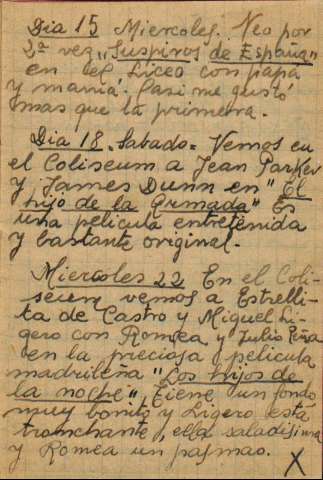 Dia 15 Miercoles. Veo por
2ª vez "Suspiros de España"
en el Liceo con papá
y mamá. Casi me gustó
mas que la primera.
Dia 18. Sabado = Vemos en
el Coliseum a Jean Parker
y James Dunn en "El
hijo de la Armada" Es
una pelicula entretenida
y bastante original.-
Miercoles 22 En el Coli-
seum vemos a Estrelli-
ta de Castro y Miguel Li-
gero con Romea y Julio Peña
en la preciosa pelicula
madrileña "Los hijos de
la noche", tiene un fondo
muy bonito y Ligero está
tronchante, ella saladisima
y Romea un pasmao.
X